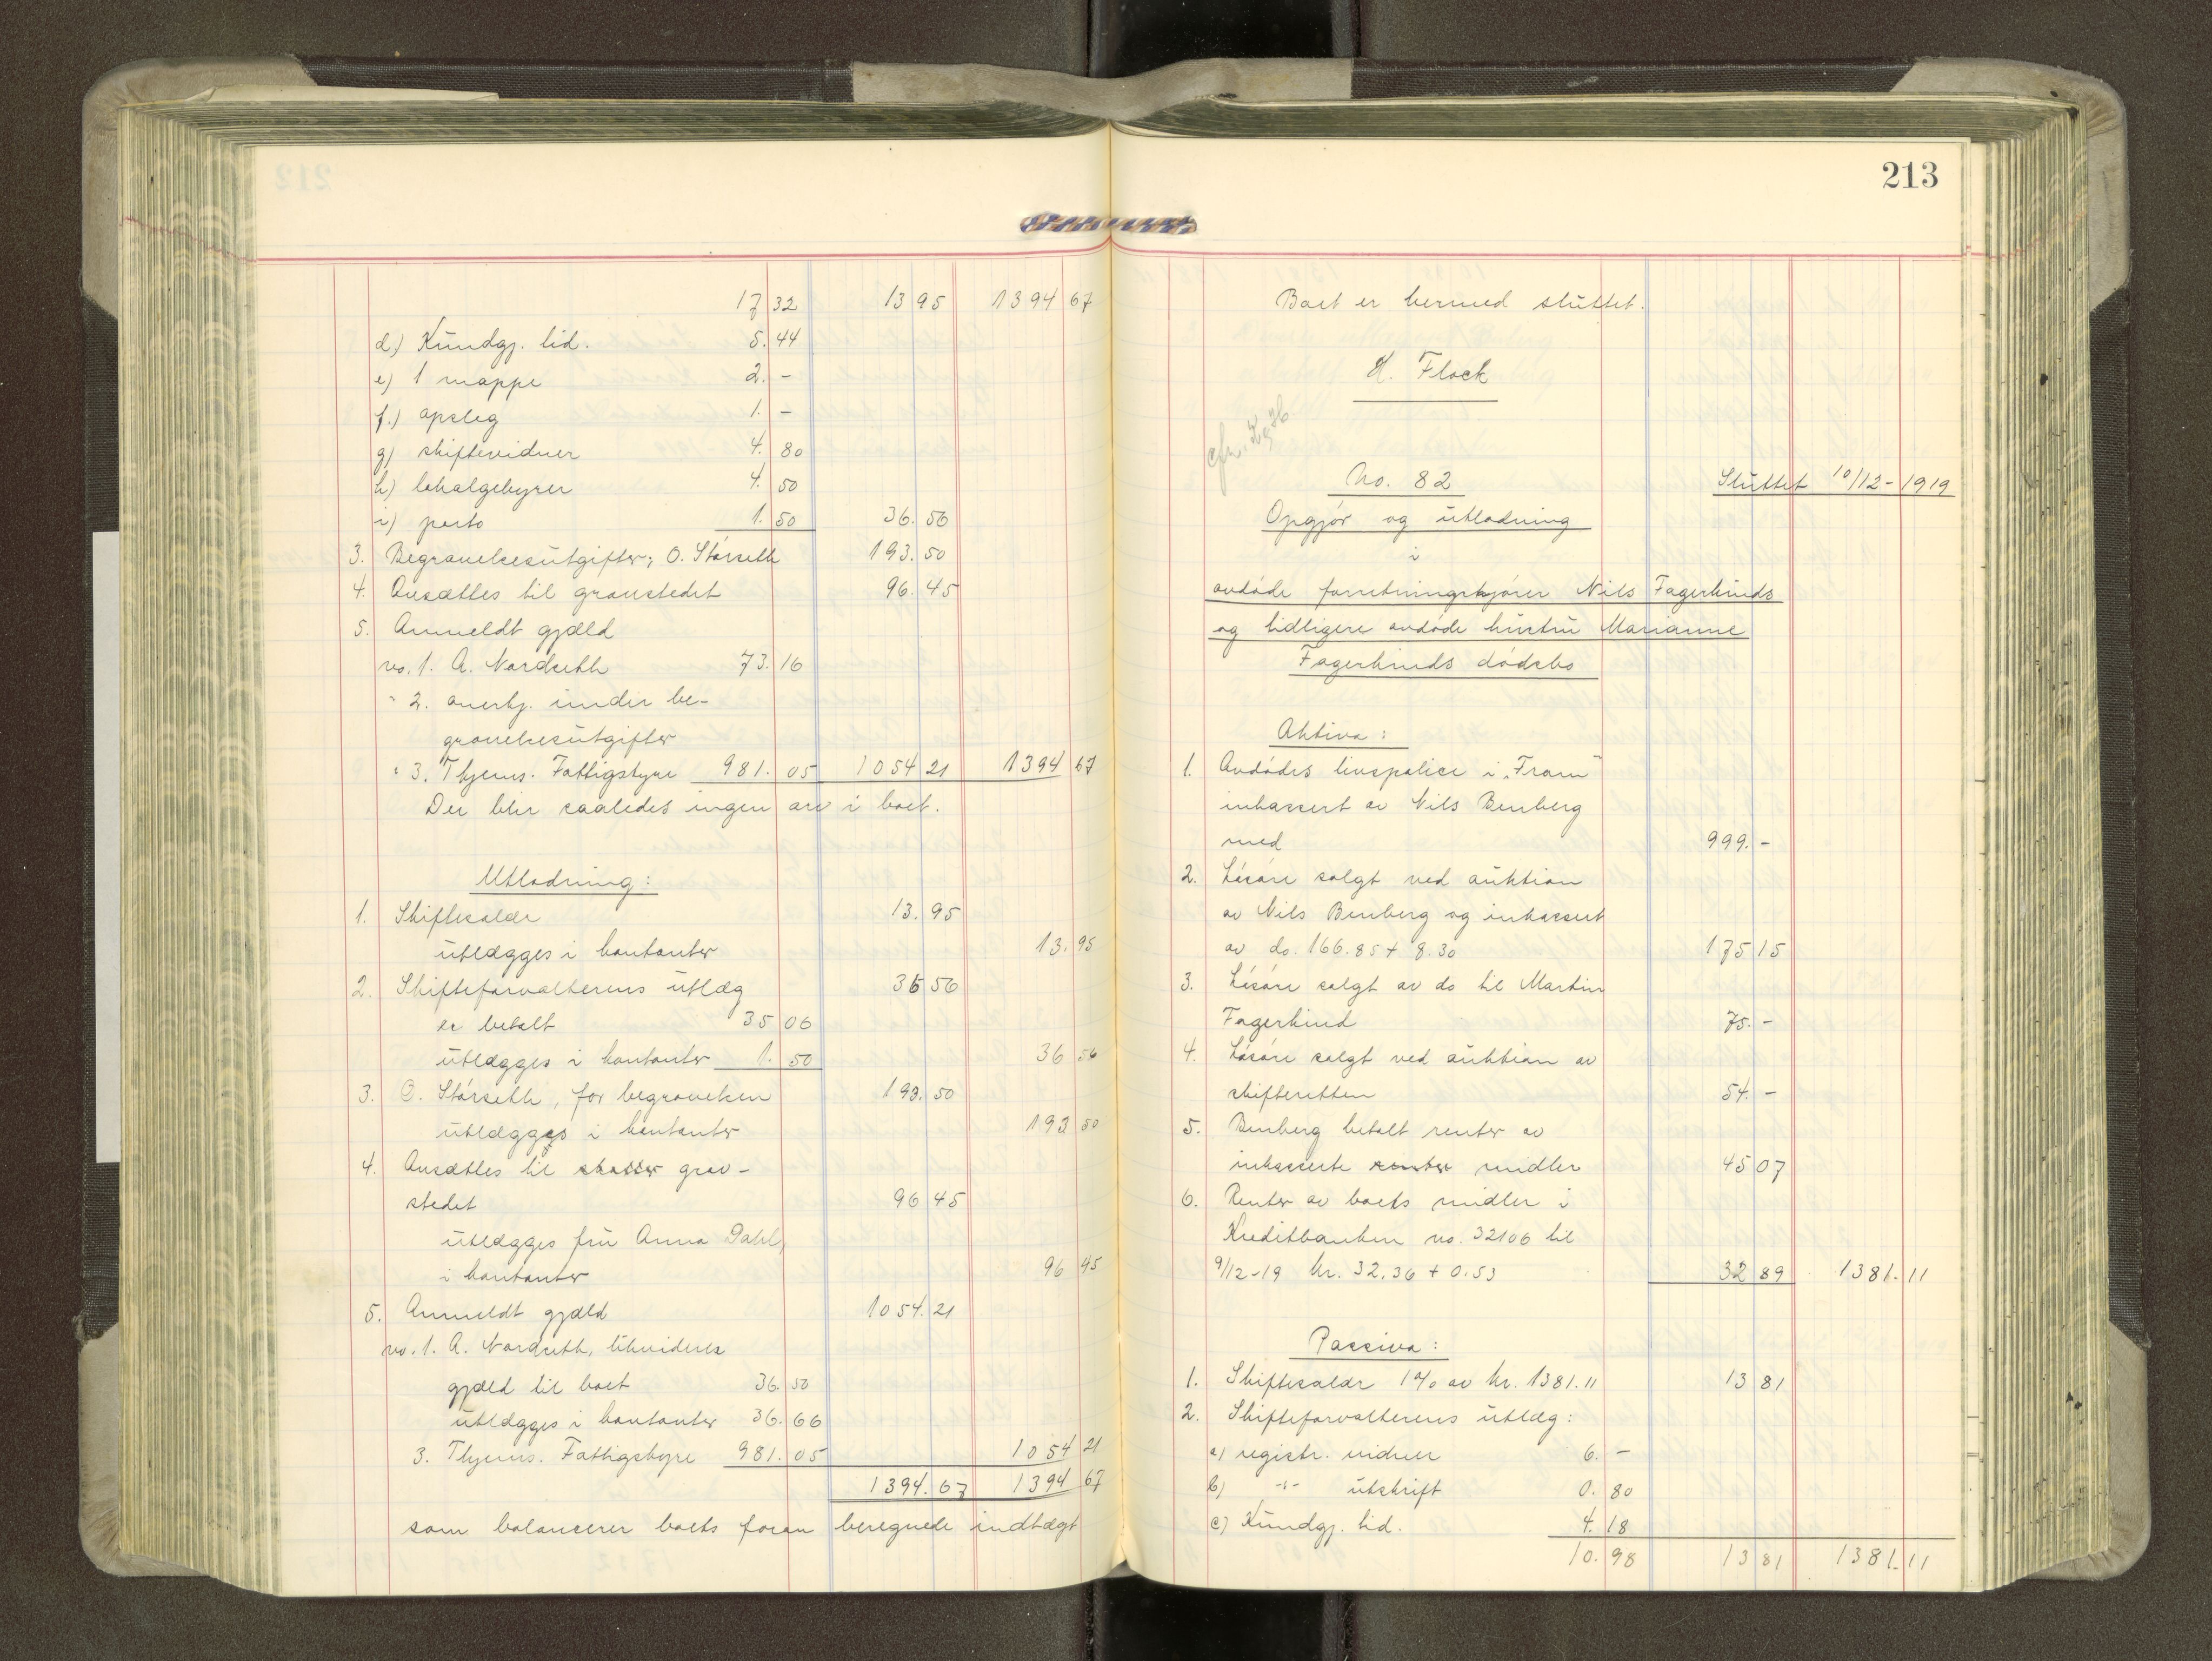 17 32 13 95 1394 67
d) Kundgj. tid. 5. 44
e) 1 mappe 2. -
f.) opslag 1. -
g) skiftevidner 4. 80
h) lokalgebyrer 4. 50
i) porto 1. 50 36. 56
3. Begravelsesutgifter; O. Störseth 193. 50
4. Avsættes til gravstedet 96. 45
5. Anmeldt gjæld
no. 1. A. Nordseth 73. 16
" 2. anerkj. under be-
gravelsesutgifter
" 3. Tlhjems. Fattigstyre 981. 05 1054 21 1394 67
Der blir saaledes ingen arv i boet.
Utlodning:
1. Skiftesaldr 13. 95
utlægges i kontanter 13. 95
2. Skifteforvalterens utlæg 36 56
er betalt 35 06
utlægges i kontanter 1. 50 36 56
3. O. Störseth, for begravelsen 193. 50
utlægges i kontanter 193 50
4. Avsættes til skatter grav-
stedet 96 45
utlægges fru Anna Dahl,
i kontanter 96 45
5. Anmeldt gjæld 1054. 21
no. 1. A. Nordseth, likvideres
gjæld til boet 36. 50
utlægges i kontanter 36. 66
3. Tlhjems. Fattigstyre 981. 05 1054 21
1394. 67 1394 67
som balancerer boets foran beregnede indtægt
213
Boet er hermed sluttet.
H. Flock
No. 82 Sluttet 10/12-1919
Opgjör og utlodning
i
avdöde forretningskjörer Nils Fagerlinds
og tidligere avdöde hustru Marianne
Fagerlinds dödsbo
Aktiva:
1. Avdödes livspolice i "Fram"
inkassert av Nils Benberg
med 999. -
2. Lösöre solgt ved auktion
av Nils Benberg og inkassert
av do. 166.85 + 8.30 175 15
3. Lösöre solgt av do til Martin
Fagerlind 75. -
4. Lösöre solgt ved auktion av
skifteretten 54. -
5. Benberg betalt renter av
inkasserte renter midler 45 07
6. Renter av boets midler i
Kreditbanken no. 32106 til
9/12-19 kr. 32.36 + 0.53 32 89 1381. 11
Passiva:
1. Skiftesaldr 1% av kr. 1381.11 13 81
2. Skifteforvalterens utlæg:
a) registr. vidner 6. -
b) -"- utskrift 0. 80
c) Kundgj. tid. 4. 18
10. 98 13 81 1381. 11